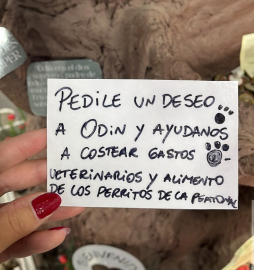 PEDILE UN DESEO
A ODIN Y AYUDANOS
A COSTEAR GASTOS
VETERINARIOS Y ALIMENTO
DE LOS PERRITOS DE LA PEATONAL